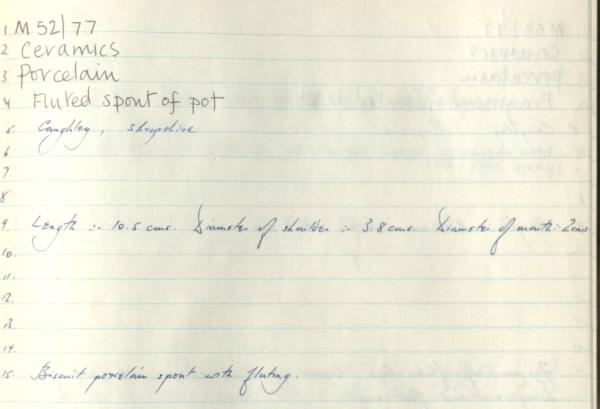 1 M 52/77
2 Ceramics
3 Porcelain
4 Fluted spout of pot
5 Caughley, Shropshire
6
7
8
9. Length :- 10.5 cms. Diameter of shoulder :- 3.8 cms. Diameter of mouth :- 2 cms
10.
11.
12.
13.
14.
15. Biscuit porcelain spout with fluting.